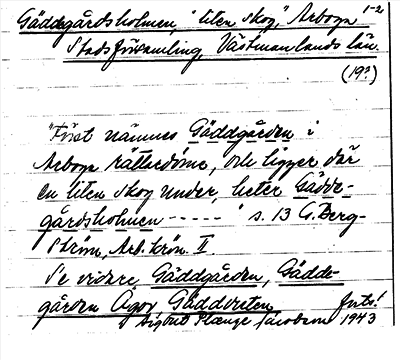 Gäddgårdsholmen, "liten skog," Arboga 1-2
Stadsförsamling, Västmanlands län.
(19?)
"Först nämnes Gäddgården i
Arboga rättaredöme, och ligger där
en liten skog under, heter Gädde-
gårdsholmen - - - - - " s. 13 G. Berg-
ström, Arb. krön. II.
Se vidare Gäddgården, Gädde-
gården Ägor Gäddveten forts!
Sigurd Placuje Jacobson 1943